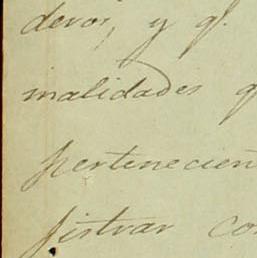 deros, y qe.
inalidades q
pertenecien
jistrar co